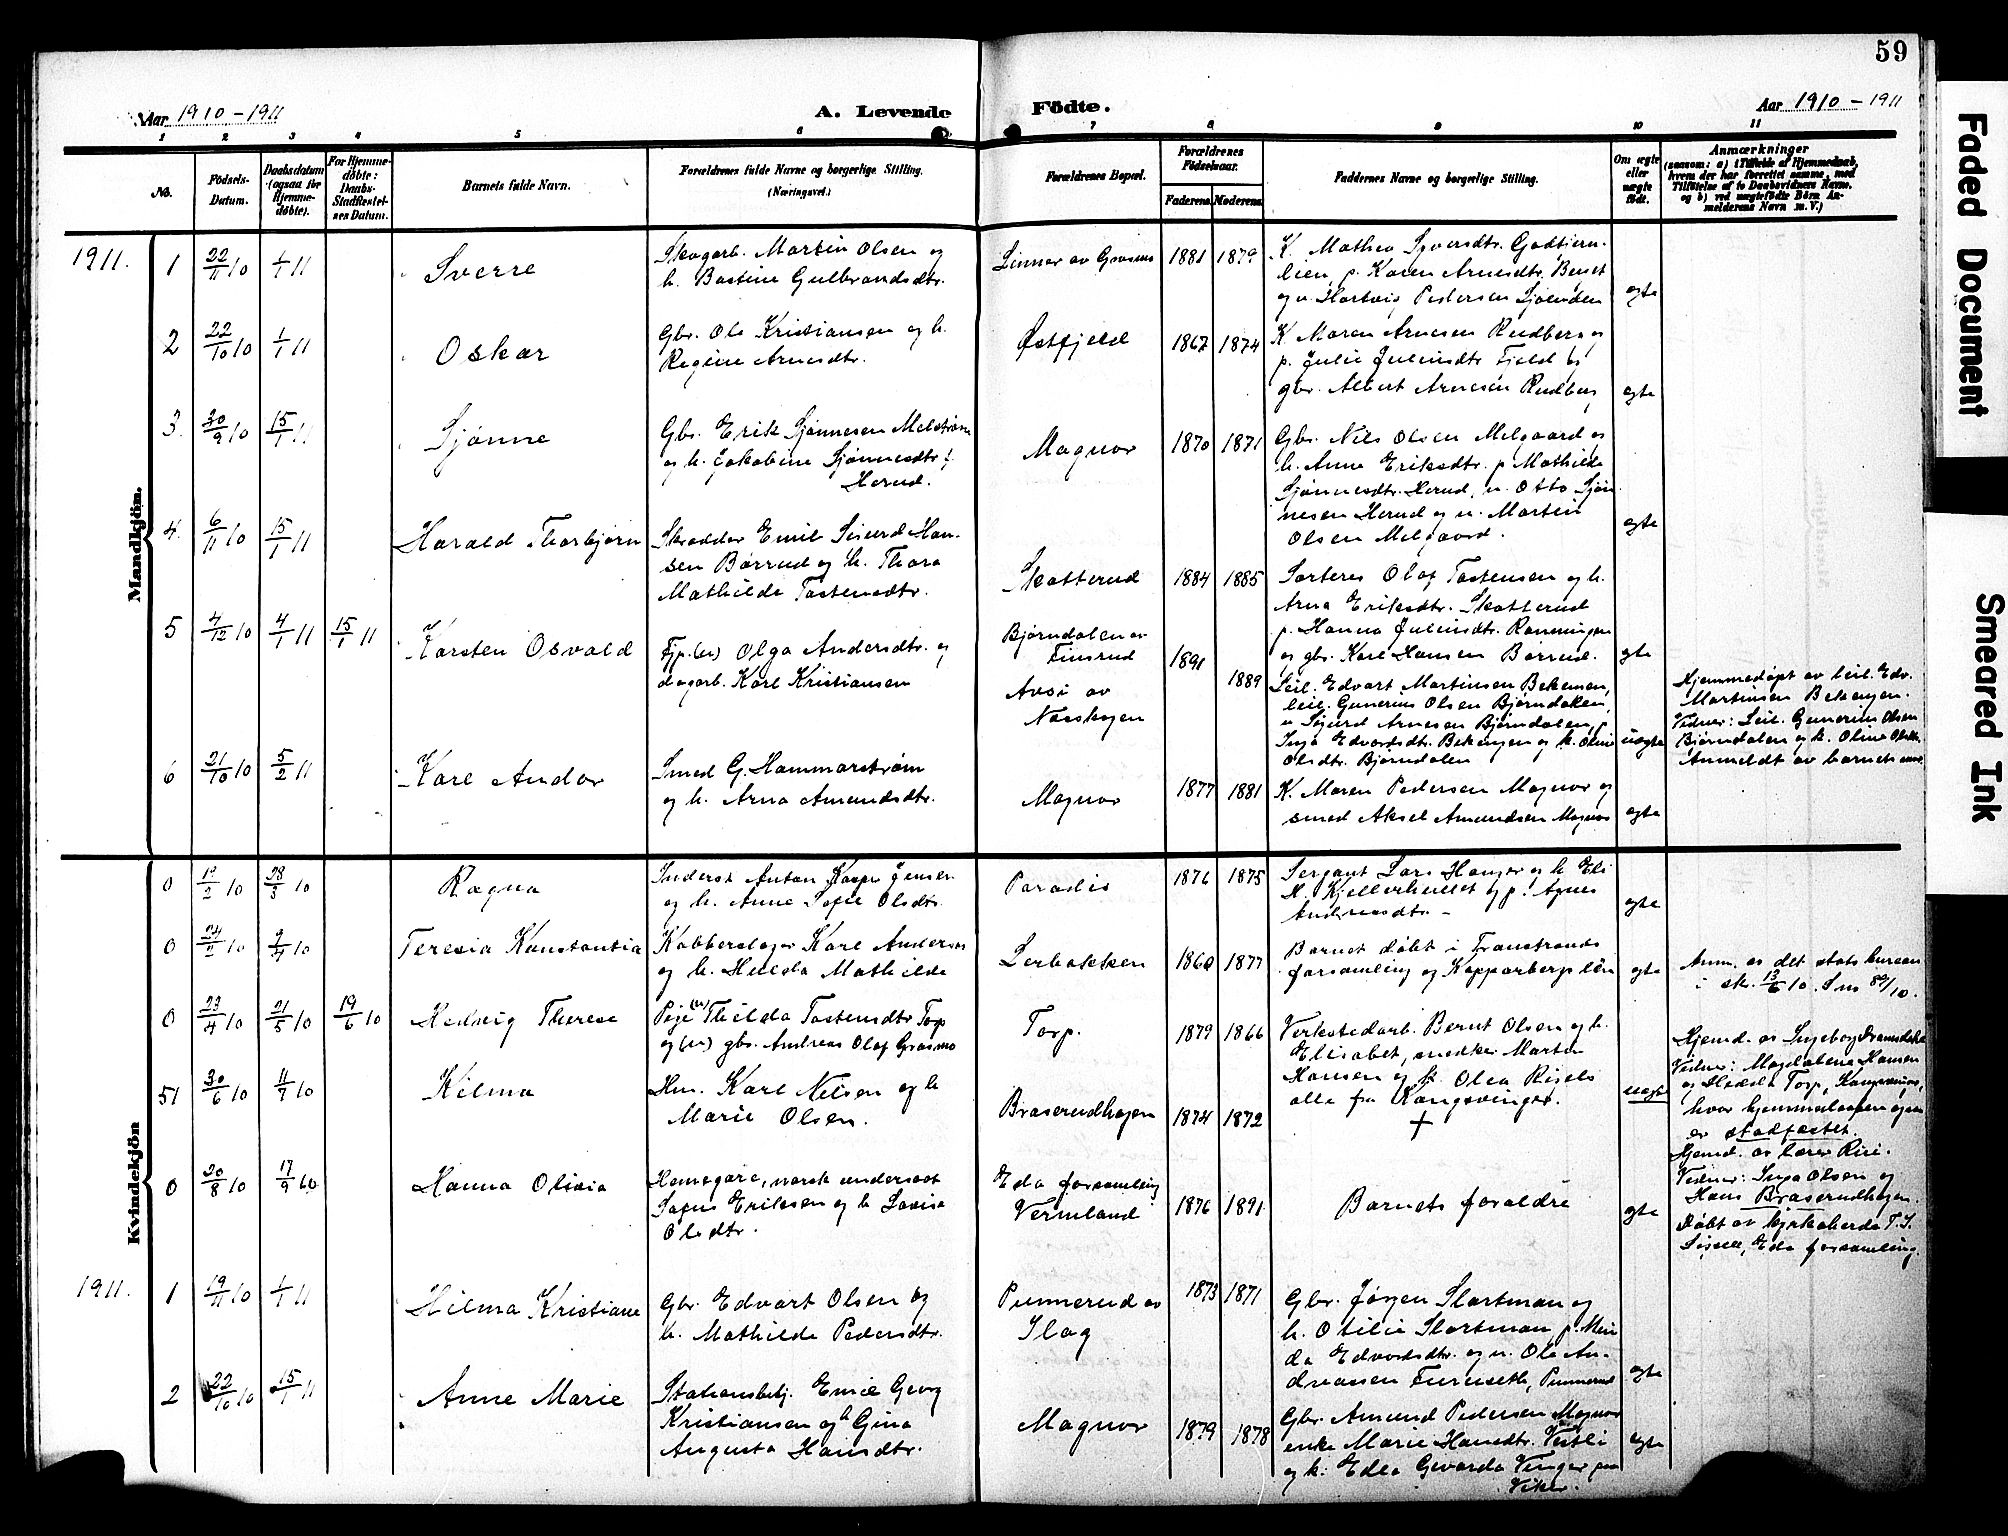 59
Aar 1910-1911
A. Levende
Födte.
Aar 1910-1911
1 2 3 4 5 6 7 8 9 10 11
No.
Födsels-
Datum.
Daabsdatum
(ogsaa for
Hjemme-
döbte).
For Hjemme-
döbte:
Daabs-
Stadfæstel-
ses Datum.
Barnets fulde Navn.
Forældrenes fulde Navne og borgerlige Stilling.
(Næringsvei.)
Forældrenes Bopæl.
Forældrenes
Födselsaar.
Faderens. Moderens.
Faddernes Navne og borgerlige Stilling.
Om ægte
eller
uægte
födt.
Anmærkninger
(saasom: a) i Tilfælde af Hjemmedaab,
hvem der har forrettet samme, med
Tilföielse af to Daabsvidners Navne,
og b) ved uægtefödte Börn An-
melderens Navn m. V.)
Mandkjön.
1911. 1 22/11 10 1/1 11 Sverre
Skogarb. Martin Olsen og
h. Bastine Gulbrandsdtr.
Linner av Grasmo 1881 1879
K. Mathea Syversdtr. Godtjern-
lien, p. Karen Arnesdtr. Benet
og u. Hartvig Pedersen Sjøenden
egte
2 22/10 10 1/1 11 Oskar
Gbr. Ole Kristiansen og h.
Regine Arnesdtr.
Østfjeld 1867 1874
K. Maren Arnesen Rudberg og
p. Julie Juliusdtr. Fjeld og
gbr. Albert Arnesen Rudberg
egte
3. 30/9 10 15/1 11 Sjønne
Gbr. Erik Sjønnesen Melstrøm
og h. Jakobine Sjønnesdtr. f.
Herud.
Magnor 1870 1871
Gbr. Nils Olsen Melgaard og
h. Anne Eriksdtr. p. Mathilde
Sjønnesdtr. Herud, u. Otto Sjøn-
nesen Herud og u. Martin
Olsen Melgaard.
egte
4. 6/11 10 15/1 11 Harald Thorbjørn
Skrædder Emil Sigurd Han-
sen Børrud og h. Thora
Mathilde Tostensdtr.
Skotterud 1884 1885
Sorterer Olaf Tostensen og h.
Arna Eriksdtr. Skotterud
p. Hanna Juliusdtr. Rønningen
og gbr. Karl Hansen Børrud.
egte
5 4/12 10 4/1 11 15/1 11 Karsten Osvald
Tjp. (u) Olga Andersdtr. og
dagarb. Karl Kristiansen
Bjørndalen av
Finsrud
Avsi av
Nesskogen
1891 1889
Leil. Edvart Martinsen Bekengen,
leil. Gunerius Olsen Bjørndalen,
u. Sigurd Arnesen Bjørndalen, p.
Inga Edvartsdtr. Bekengen og k. Oline
Olsdtr. Bjørndalen
uegte
Hjemmedøpt av leil. Edv.
Martinsen Bekengen.
Vidner: Leil. Gunerius Olsen
Bjørndalen og k. Oline Olsdtr.
Anmeldt av barnets mor.
6 21/10 10 5/2 11 Karl Andor
Smed G. Hammarstrøm
og h. Arna Amundsdtr.
Magnor 1877 1881
K. Maren Pedersen Magnor og
smed Aksel Amundsen Magnor
egte
Kvindekjön
0 19/2 10 28/3 10 Ragna
Inderst Anton Kasper Jensen
og h. Anne Sofie Olsdtr.
Paradis 1876 1875
Sergant Lars Hanger og h. Eli
M. Kjellerhullet og p. Agnes
Andreasdtr.
egte
0 24/2 10 2/4 10 Teresia Konstantia
Kobberslager Karl Anderson
og h. Hulda Mathilde
Lerbakken 1860 1877
Barnet døbt i Transtrands
forsamling og Kopparbergs län
egte
Anm. av det stats bureau
i sk. 13/6 10.
0 23/4 10 21/5 10 19/6 10 Hedvig Therese
Pige (u) Thilda Tostensdtr. Torp
og (u) gbs. Andreas Olaf Grasmo
Torp. 1879 1866
Verkstedarb. Bernt Olsen og h.
Elisabet, snedker Martin
Hansen og h. Olea Riseli
alle fra Kongsvinger.
uegte
Hjemd. av Ingeborg Framdalen
Vidner: Magdalena Hansen
og Hedda Torp, Kongsvinger,
hvor hjemmedaapen ogsaa
er stadfæstet.
51 30/6 10 11/7 10 Hilma
Hm. Karl Nilsen og h
Marie Olsen.
Braserudhagen 1874 1872
+
Hjemd. av lærer Riri.
Vidner: Inga Olsen og
Hans Braserudhagen.
0 20/8 10 17/9 10 Hanna Olivia
Hemegare, norsk undersaat
Sofus Eriksen og h Lovisa
Olsdtr.
Eda forsamling
Vermland 1876 1891
Barnets forældre
egte
Døbt av kyrkoherde T. S.
Sisell, Eda forsamling.
1911. 1 19/11 10 1/1 11 Hilma Kristiane
Gbr. Edvart Olsen og
h. Mathilde Pedersdtr.
Punnerud av
Slag 1873 1871
Gbr. Jørgen Slortman og
h. Otilie Slortman, p. Men
da Edvardsdtr. og u. Ole An-
dreassen Furuseth, Punnerud
egte
2 22/10 10 15/1 11 Anne Marie
Stationsbetj. Emil Georg
Kristiansen og h Gina
Augusta Hansdtr.
Magnor 1879 1878
Gbr. Amund Pedersen Magnor
enke Marie Hansdtr. Vestli
og k. Edla Gevarda Vinger paa
Viker.
egte
Faded Document
Smeared Ink